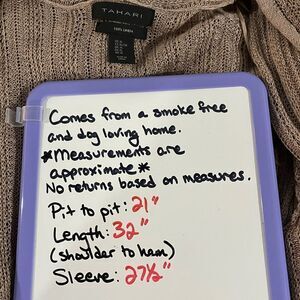 TAHARI
100% LINEN
Comes from a smoke free
and dog loving home.
*Measurements are
approximate*
No returns based on measures.
Pit to pit: 21"
Length: 32"
(shoulder to ham)
Sleeve: 27½"